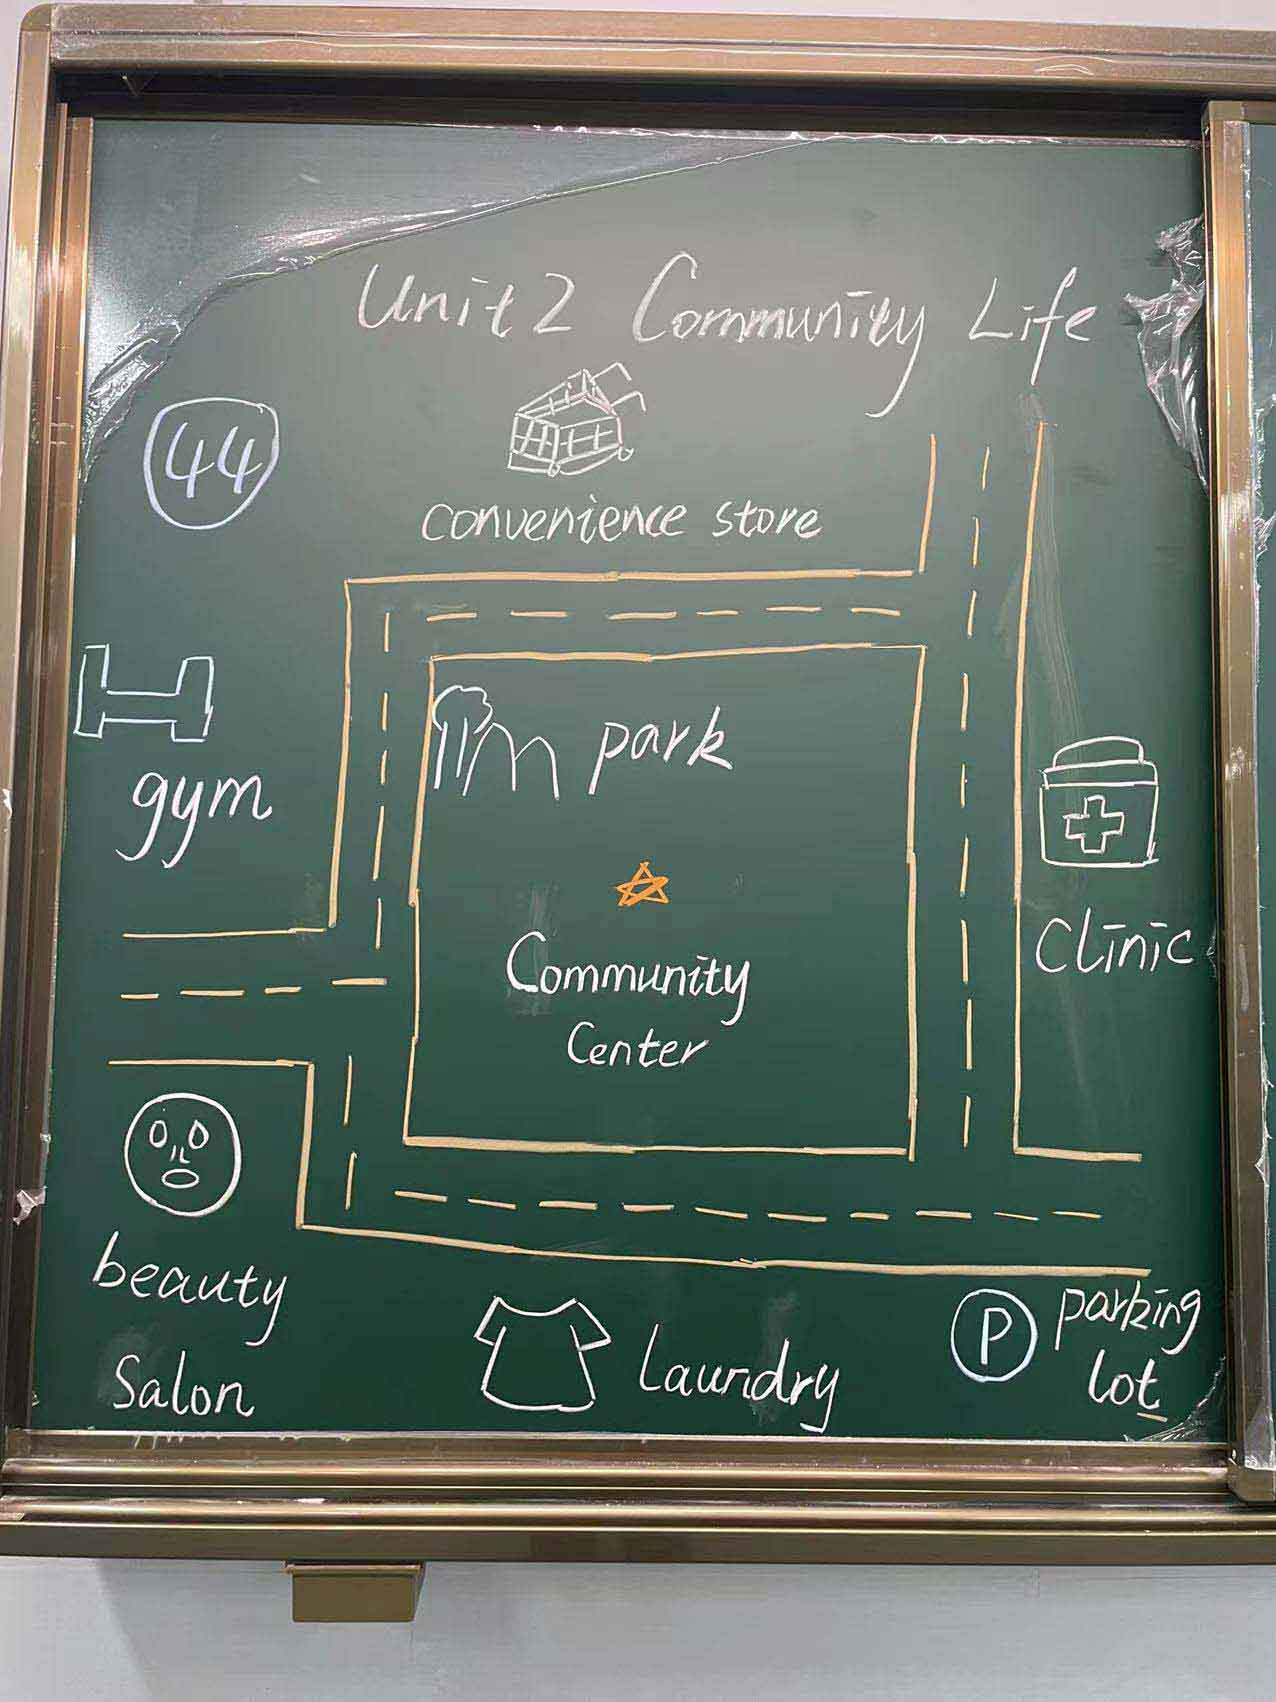 Unit 2 Community Life
44
convenience store
gym
park
Clinic
Community
Center
beauty
Salon
Laundry
P
parking
lot